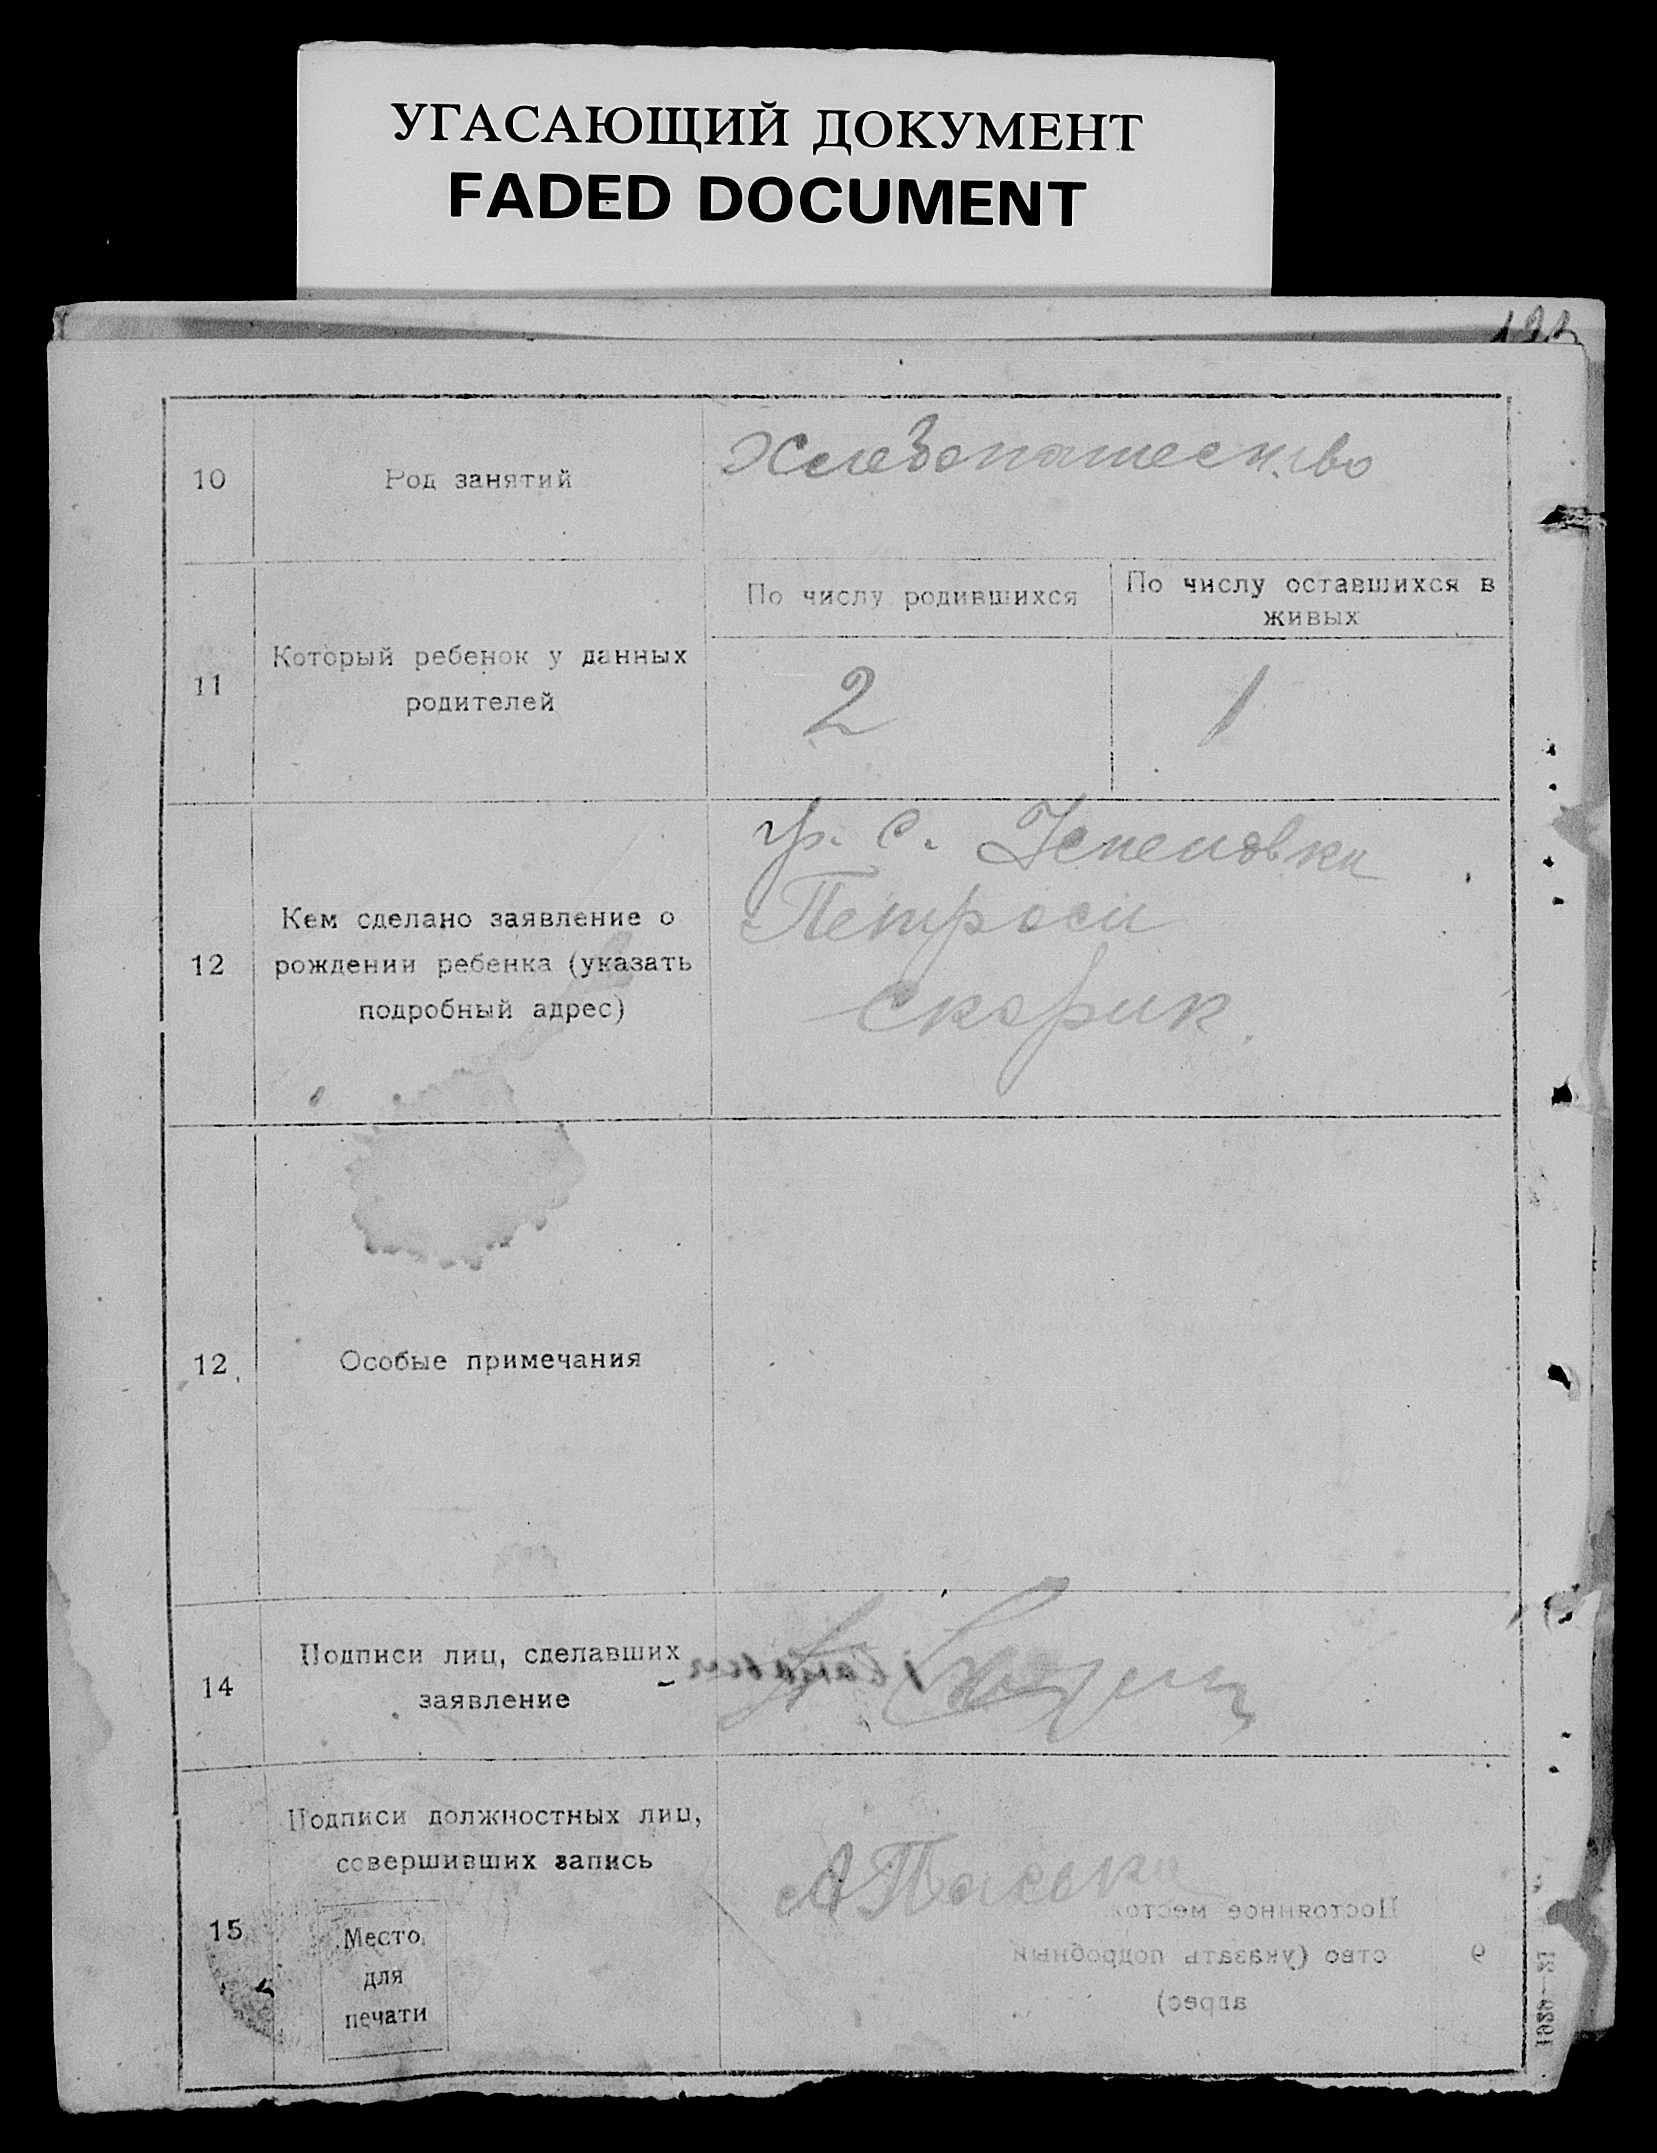 УГАСАЮЩИЙ ДОКУМЕНТ
FADED DOCUMENT
10
Род занятий
Хлебопашество
11
Который ребенок у данных
родителей
По числу родившихся
По числу оставшихся в
живых
2
1
12
Кем сделано заявление о
рождении ребенка (указать
подробный адрес)
гр. с.
Скорик.
12
Особые примечания
14
Подписи лиц, сделавших
заявление
15
Подписи должностных лиц,
совершивших запись
Место
для
печати
Постоянное место
ство (указать подробный
адрес)
9